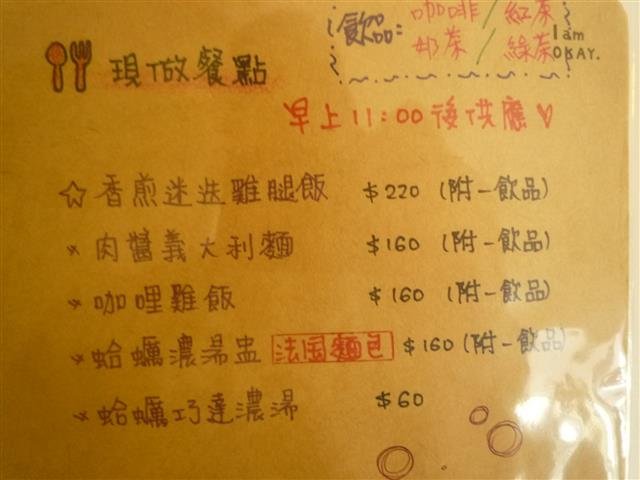 飲品: 咖啡 / 紅茶
奶茶 / 綠茶
I am
OKAY.
現做餐點
早上11:00後供應
☆香煎迷迭雞腿飯 $220 (附一飲品)
肉醬義大利麵 $160 (附一飲品)
咖哩雞飯 $160 (附一飲品)
蛤蠣濃湯盅 法国麵包 $160 (附一飲品)
蛤蠣巧達濃湯 $60